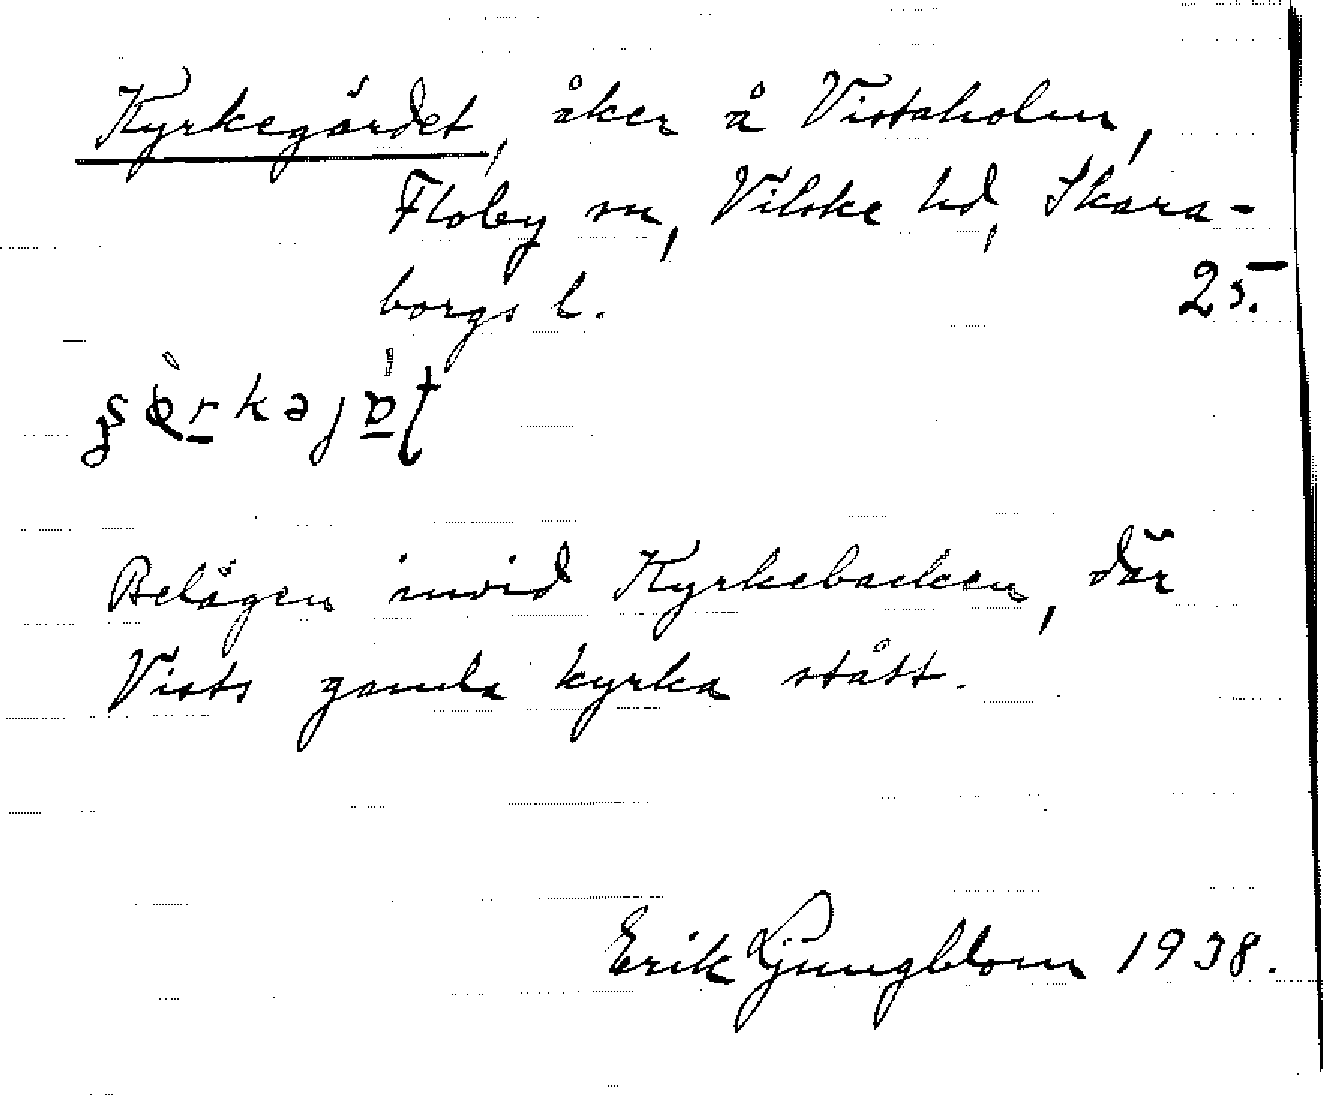 Kyrkegärdet, åker å Vistaholm,
Floby sn, Vilske hd, Skara-
borgs l.
25.
Belägen invid Kyrkebacken, där
Vists gamla kyrka stått.
Erik Ljungblom 1938.